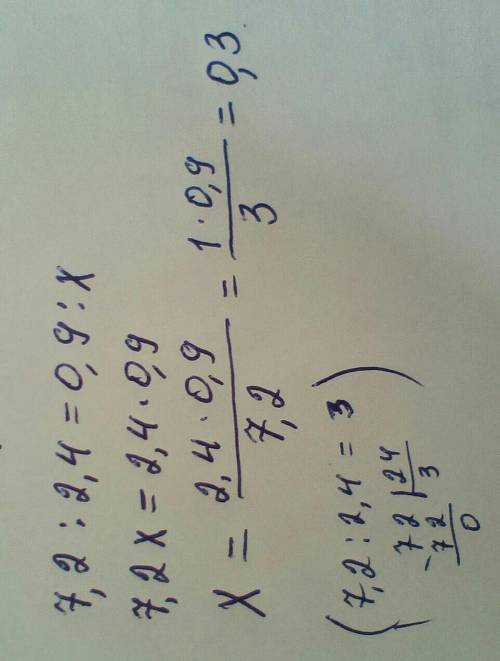 7,2 : 2,4 = 0,9 : x
7,2 x = 2,4 · 0,9
x = \frac{2,4 · 0,9}{7,2} = \frac{1 · 0,9}{3} = 0,3
(7,2 : 2,4 = 3
72 | 24
-72 | 3
0)